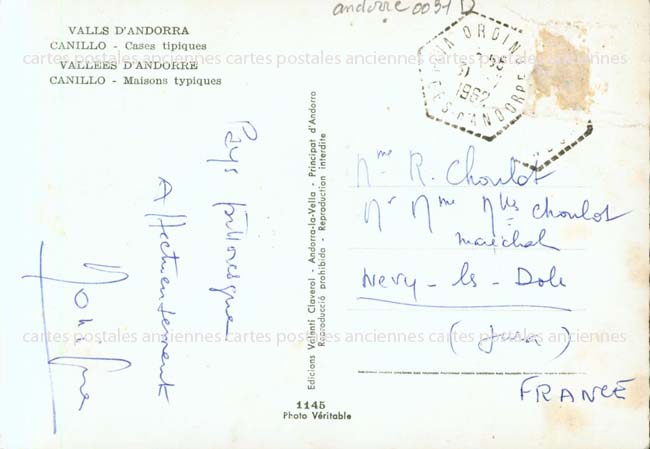 andorre 0031
VALLS D'ANDORRA
CANILLO - Cases tipiques
VALLEES D'ANDORRE
CANILLO - Maisons typiques
ORDIN
1962
cartes postales anciennes cartes postales anciennes cartes postales anciennes
Pays pittoresque
Affectueusement
Edicions Valentí Claverol - Andorra-la-Vella - Principat d'Andorra
Reproducció prohibida - Reproduction interdite
Mme R. Choulot
Mr Mme Mlls Choulot
maréchal
Nevy-ls-Dole
(Jura)
FRANCE
cartes postales anciennes cartes postales anciennes cartes postales anciennes
1145
Photo Véritable